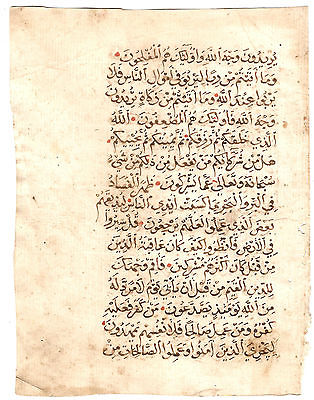 يُرِيدُونَ وَجْهَ اللَّهِ وَأُولَٰئِكَ هُمُ الْمُفْلِحُونَ
وَمَا آتَيْتُمْ مِنْ رِبًا لِيَرْبُوَ فِي أَمْوَالِ النَّاسِ فَلَا
يَرْبُو عِنْدَ اللَّهِ وَمَا آتَيْتُمْ مِنْ زَكَاةٍ تُرِيدُونَ
وَجْهَ اللَّهِ فَأُولَٰئِكَ هُمُ الْمُضْعِفُونَ اللَّهُ
الَّذِي خَلَقَكُمْ ثُمَّ رَزَقَكُمْ ثُمَّ يُمِيتُكُمْ ثُمَّ يُحْيِيكُمْ
هَلْ مِنْ شُرَكَائِكُمْ مَنْ يَفْعَلُ مِنْ ذَٰلِكُمْ مِنْ شَيْءٍ
سُبْحَانَهُ وَتَعَالَىٰ عَمَّا يُشْرِكُونَ ظَهَرَ الْفَسَادُ
فِي الْبَرِّ وَالْبَحْرِ بِمَا كَسَبَتْ أَيْدِي النَّاسِ لِيُذِيقَهُمْ
بَعْضَ الَّذِي عَمِلُوا لَعَلَّهُمْ يَرْجِعُونَ قُلْ سِيرُوا
فِي الْأَرْضِ فَانْظُرُوا كَيْفَ كَانَ عَاقِبَةُ الَّذِينَ
مِنْ قَبْلُ كَانَ أَكْثَرُهُمْ مُشْرِكِينَ فَأَقِمْ وَجْهَكَ
لِلدِّينِ الْقَيِّمِ مِنْ قَبْلِ أَنْ يَأْتِيَ يَوْمٌ لَا مَرَدَّ لَهُ
مِنَ اللَّهِ يَوْمَئِذٍ يَصَّدَّعُونَ مَنْ كَفَرَ فَعَلَيْهِ
كُفْرُهُ وَمَنْ عَمِلَ صَالِحًا فَلِأَنْفُسِهِمْ يَمْهَدُونَ
لِيَجْزِيَ الَّذِينَ آمَنُوا وَعَمِلُوا الصَّالِحَاتِ مِنْ